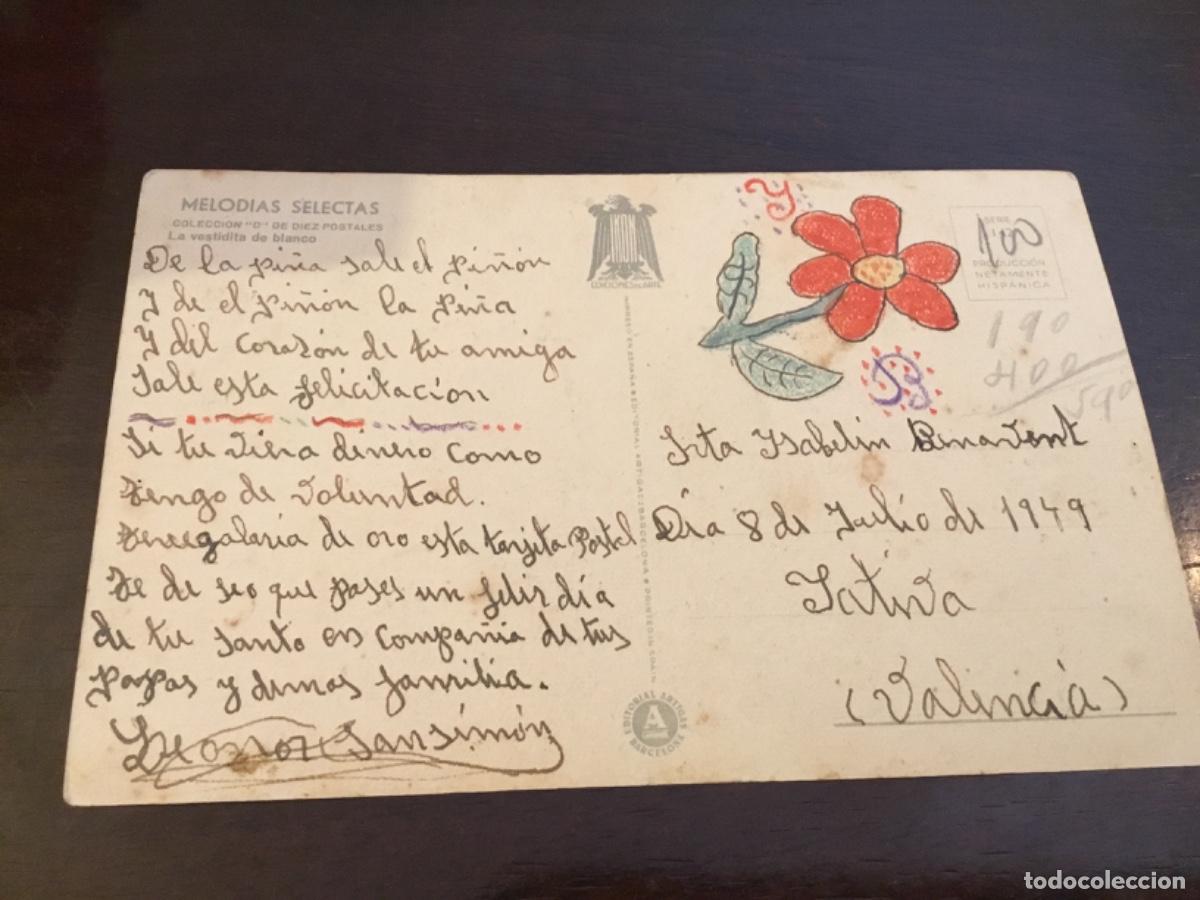 MELODIAS SELECTAS
COLECCION "D" DE DIEZ POSTALES
La vestidita de blanco
De la piña sale el piñón
Y de el piñón la piña
Y del corazón de tu amiga
Sale esta felicitación
Si tu viera dinero como
tengo de voluntad.
te regalaria de oro esta tarjita Postal
Te de seo que pases un felir día
de tu santo en compañia de tus
papas y demas familia.
Leonor Sansimón
EDICIONES DE ARTE
EDITORIAL ARTIGAS
BARCELONA
A
Y
B
SERIE
100
PRODUCCIÓN
NETAMENTE
HISPÁNICA
190
400
590
Srta Ysabelin Benavent
Día 8 de Julio de 1949
Jativa
(Valencia)
todocoleccion